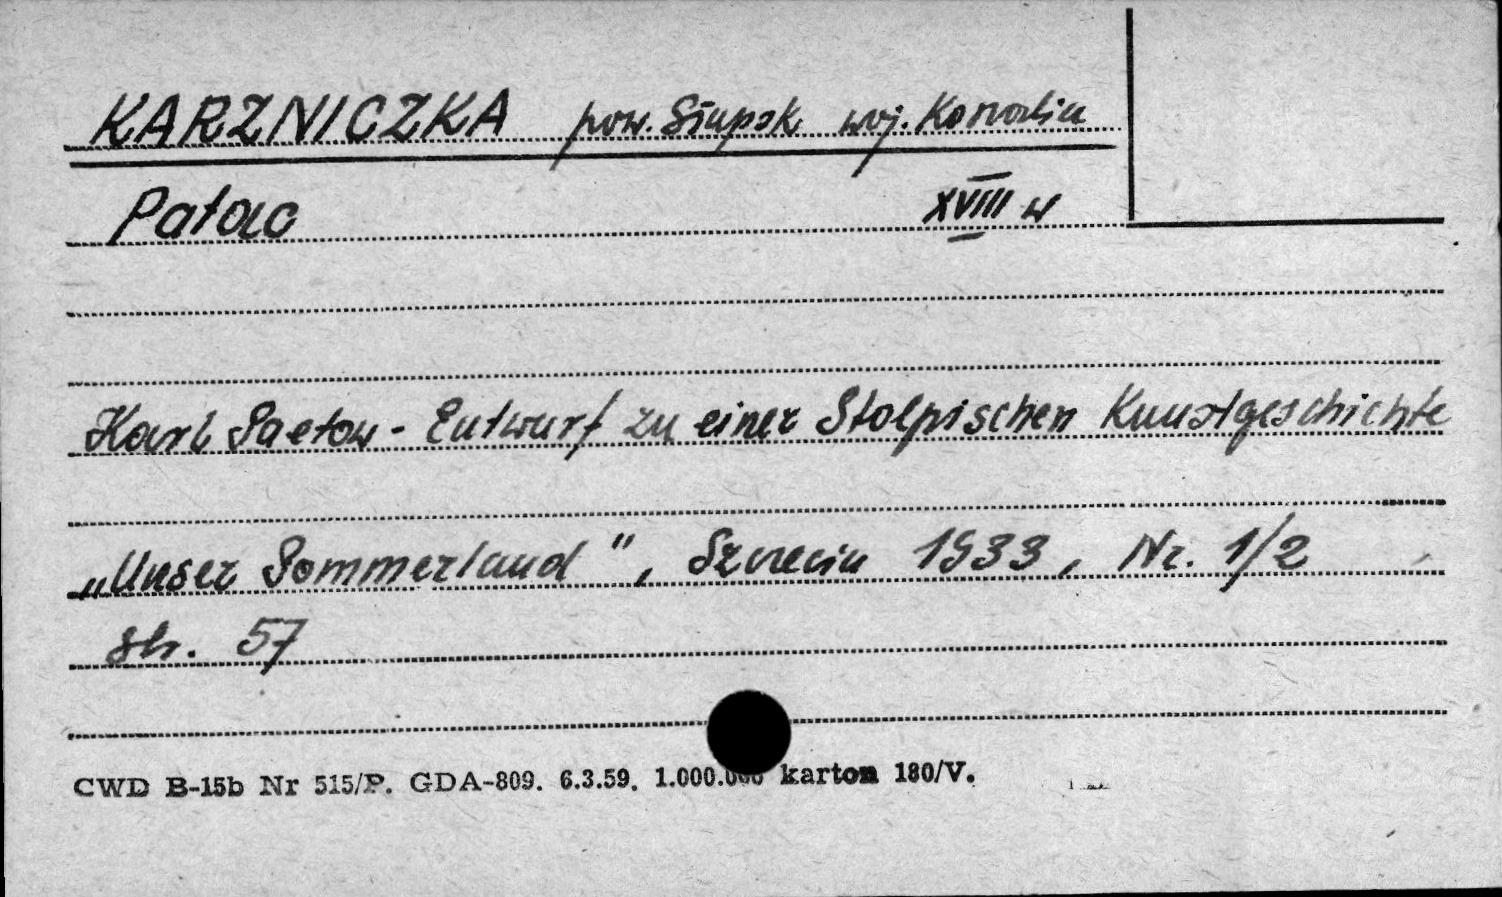 KARZNICZKA pow. Słupsk woj. Koszalin
Pałac XVIII w
Karl Paetow - Entwurf zu einer Stolpischen Kunstgeschichte
„Unser Pommerland", Szczecin 1933, Nr. 1/2
str. 57
CWD B-15b Nr 515/P. GDA-809. 6.3.59. 1.000.000 karton 180/V.